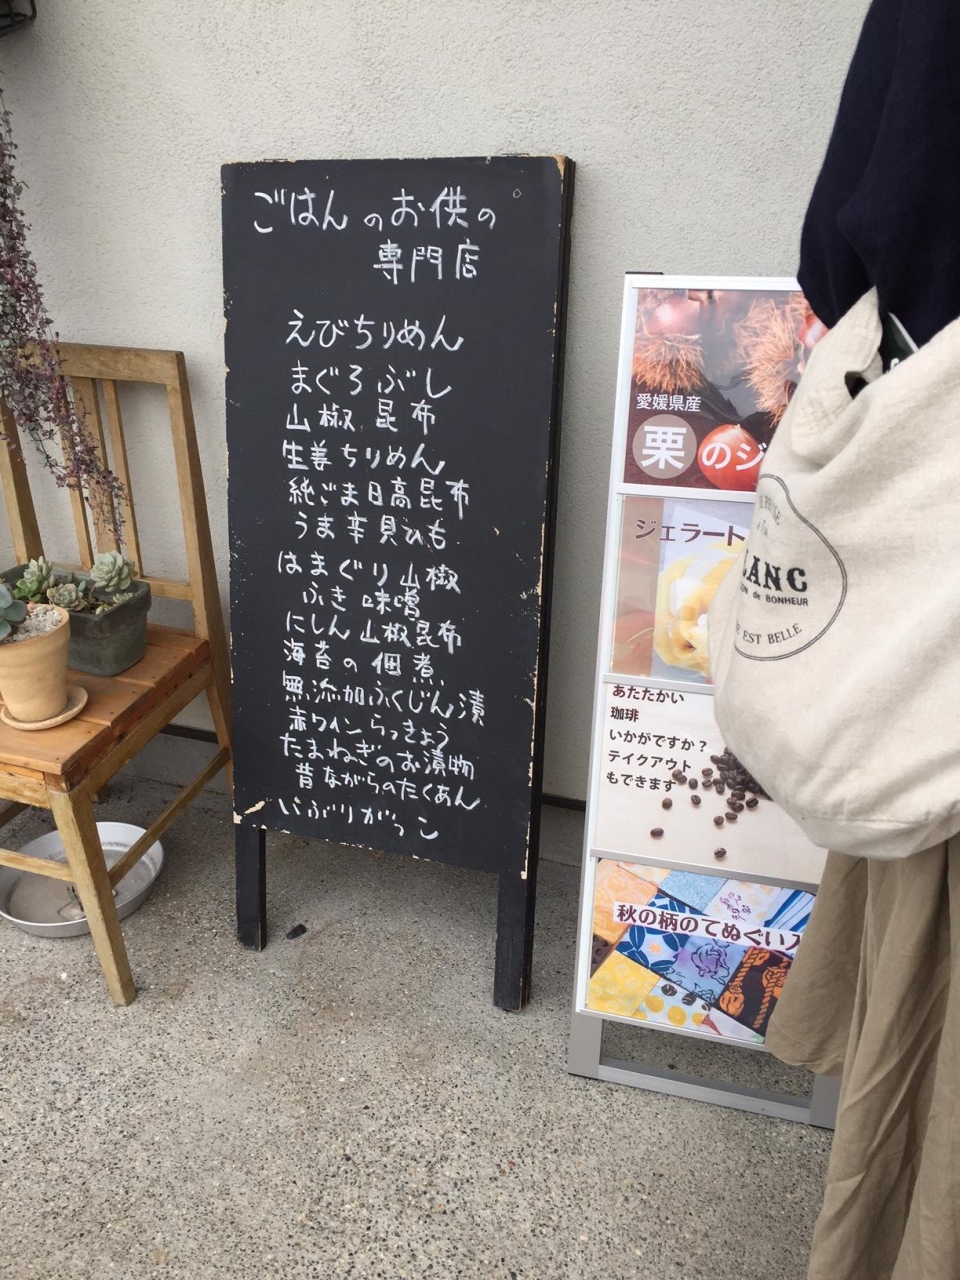 ごはんのお供の
専門店
えびちりめん
まぐろぶし
山椒昆布
生姜ちりめん
純ごま日高昆布
うま辛貝ひも
はまぐり山椒
ふき味噌
にしん山椒昆布
海苔の佃煮
無添加ふくじん漬
赤ワインらっきょう
たまねぎのお漬物
昔ながらのたくあん
いぶりがっこ
愛媛県産
栗のジ
ジェラート
あたたかい
珈琲
いかがですか？
テイクアウト
もできます
秋の柄のてぬぐい入
LANC
de BONHEUR
EST BELLE